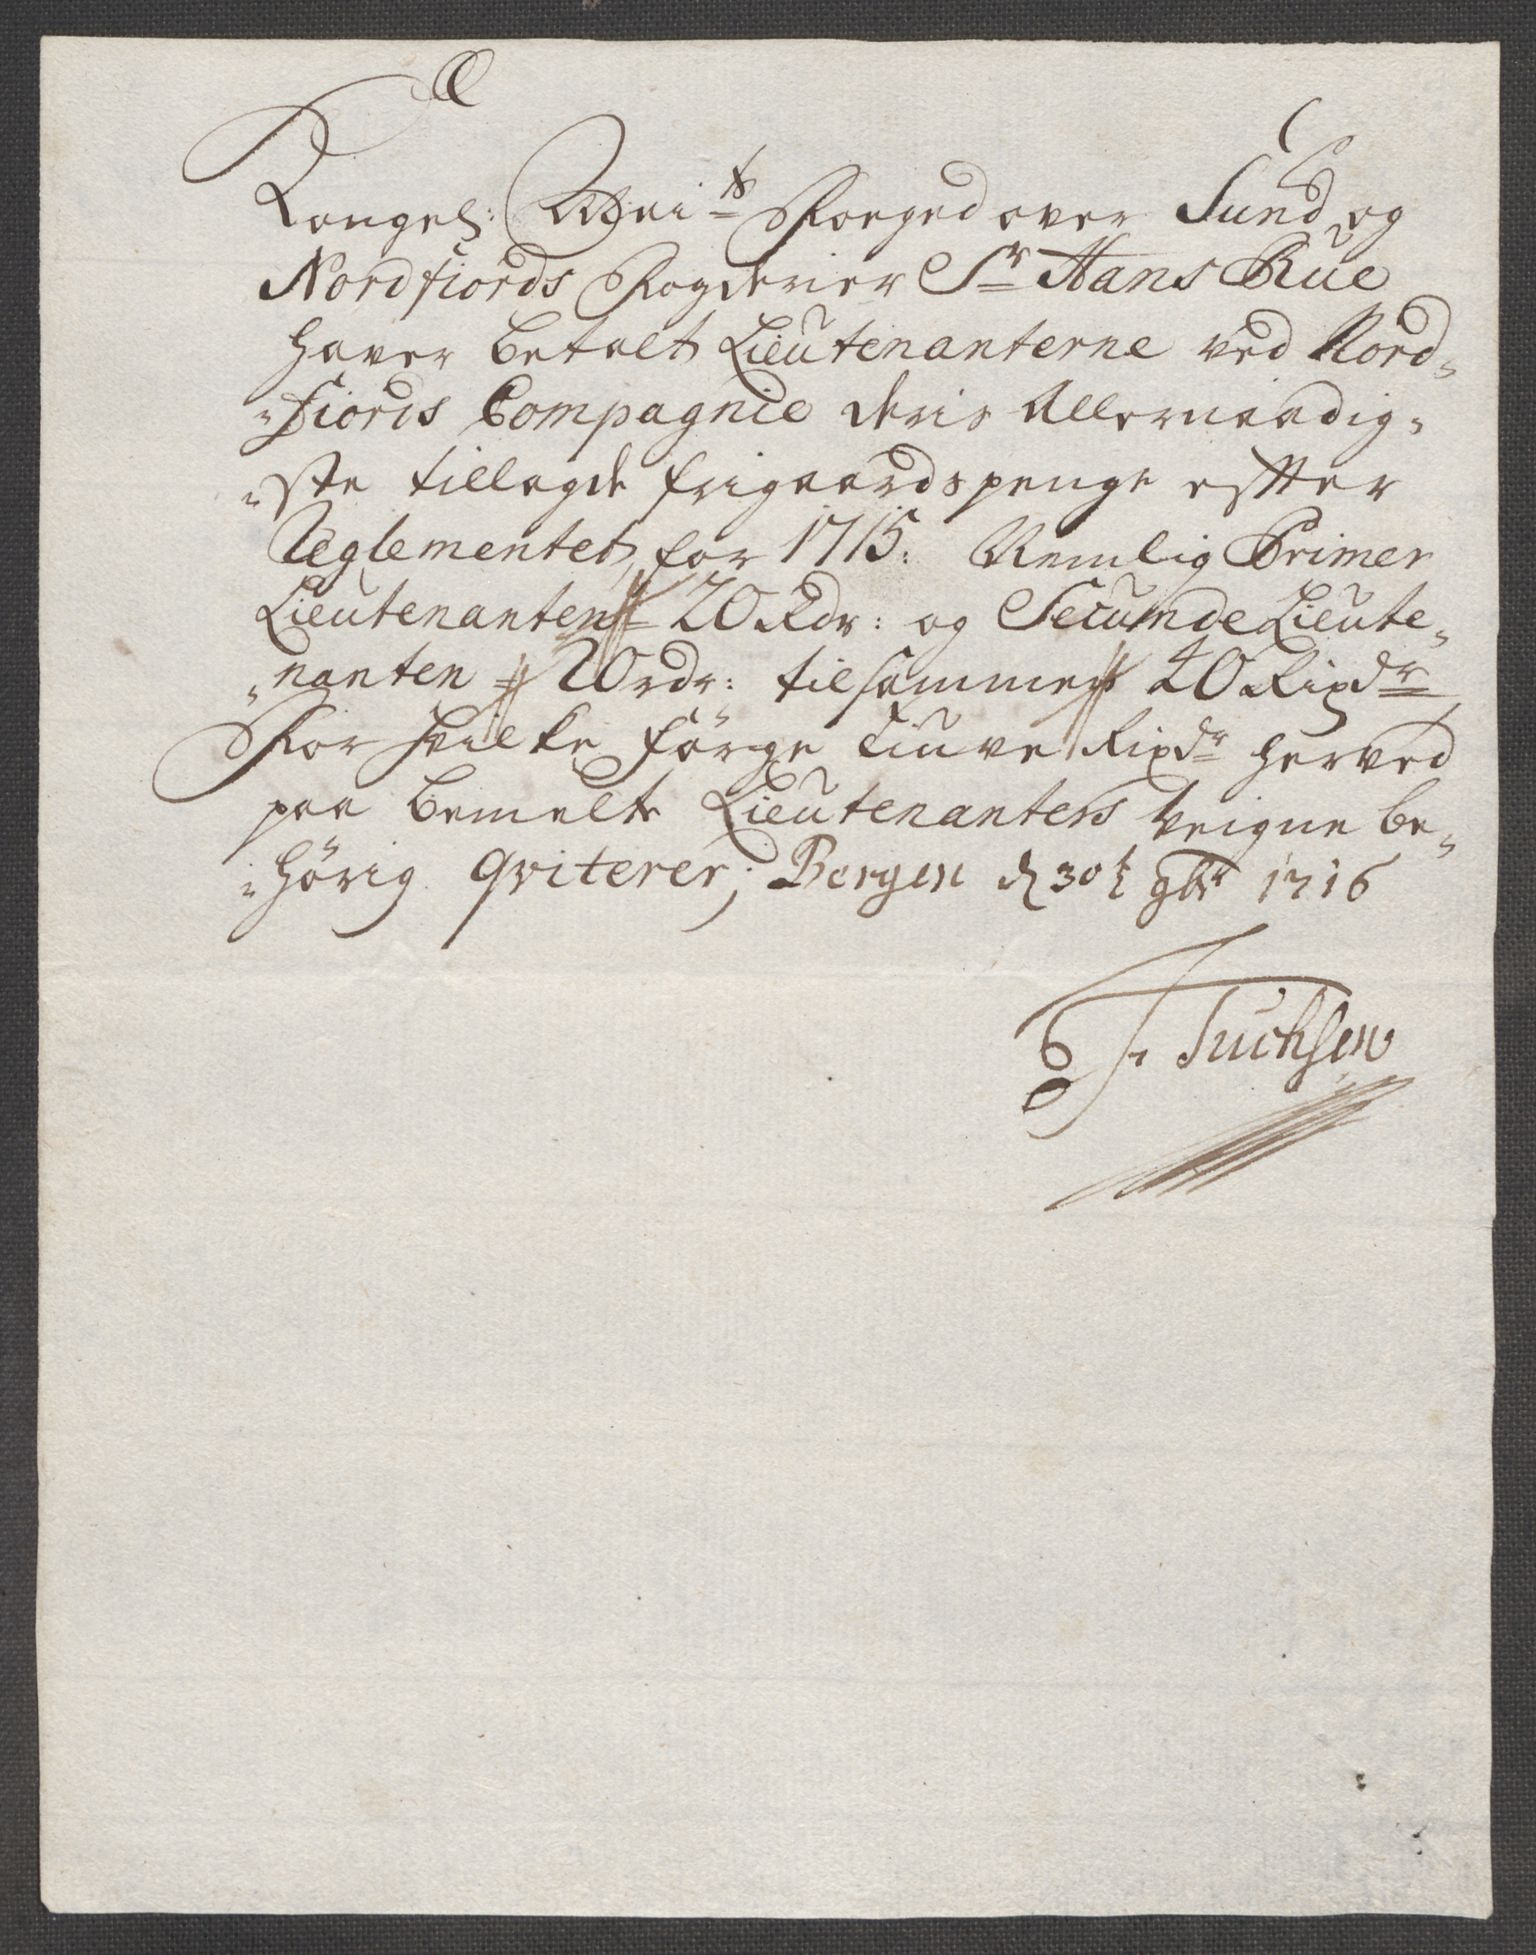 Kongel: Maits Foeged over Sund og
Nordfiords Fogderier Sr Hans Rue
haver betalt Lieutenanterne ved Nord-
-fiords Compagnie deris Allernaadig-
-ste tillagde frigaards penge efter
Reglementet for 1715: Nemlig Primer
Lieutenanten 20 Rdr: og Secunde Lieute-
-nanten 20 rdr: tilsammen 40 Rixdr
For hvilke förge tiuve Rixdr herved
paa bemelte Lieutenanters veigne be-
-hörig qviterer; Bergen d 30t 9br 1716